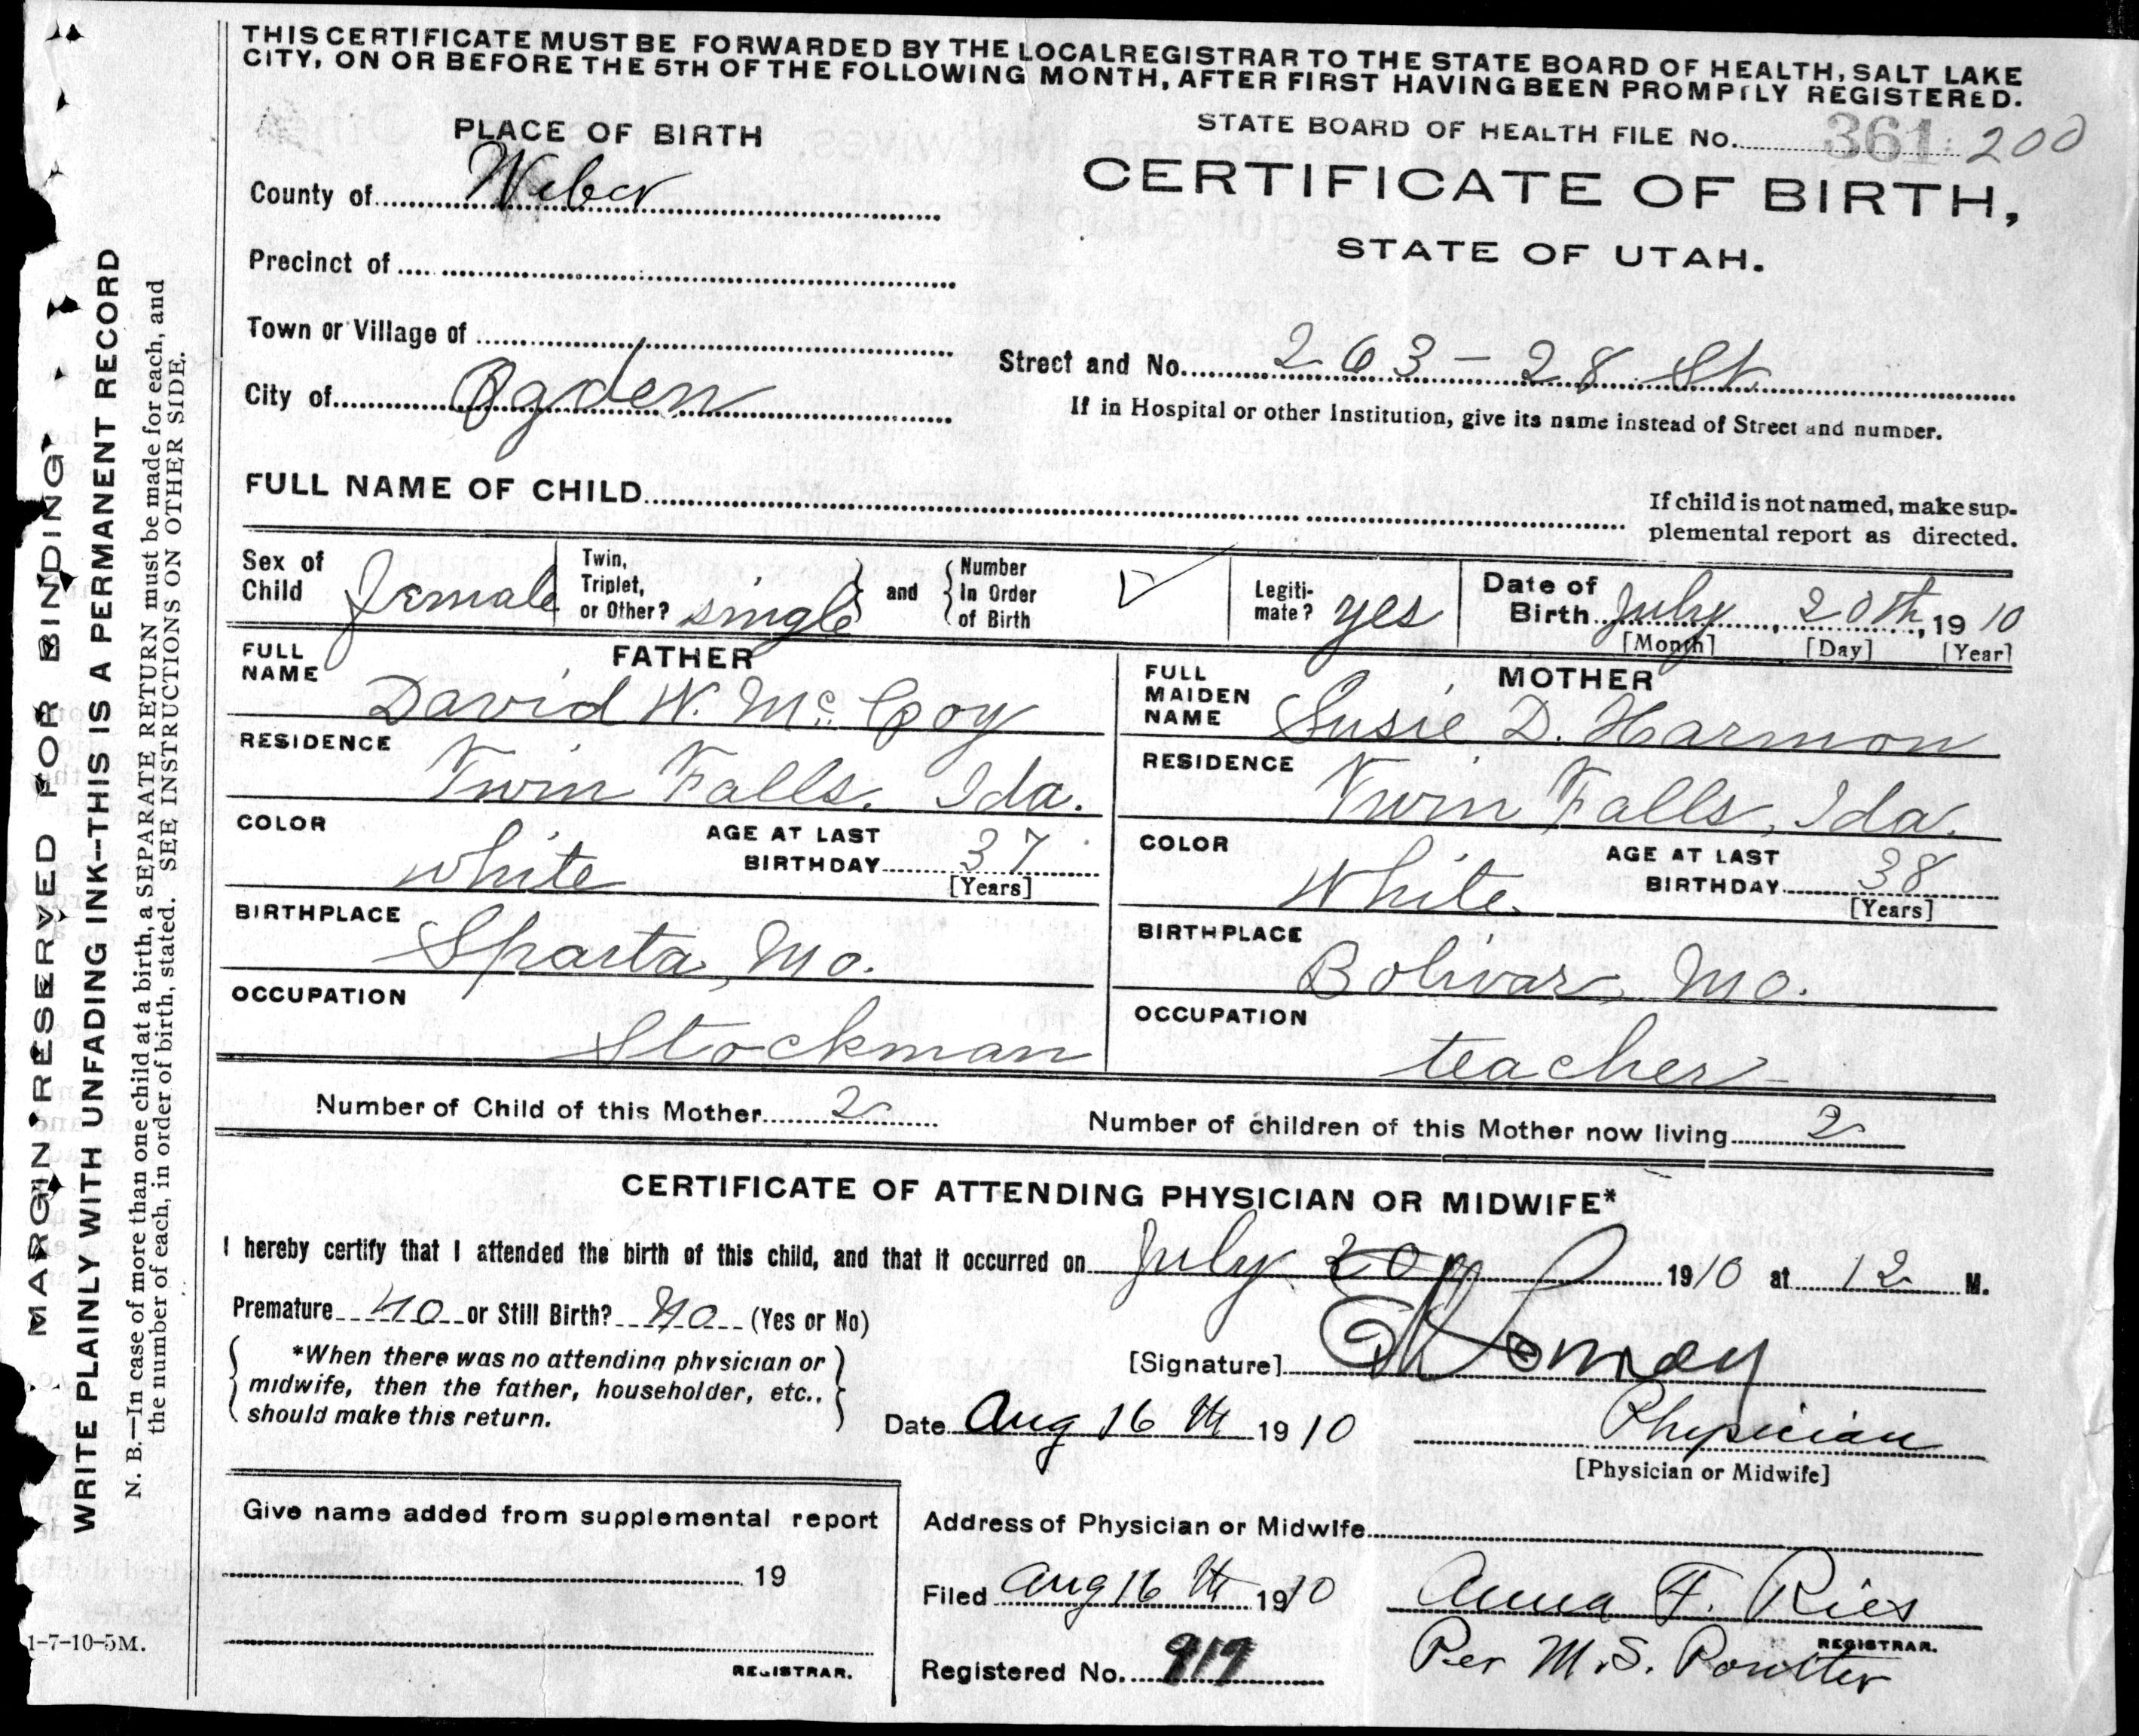 THIS CERTIFICATE MUST BE FORWARDED BY THE LOCAL REGISTRAR TO THE STATE BOARD OF HEALTH, SALT LAKE
CITY, ON OR BEFORE THE 5TH OF THE FOLLOWING MONTH, AFTER FIRST HAVING BEEN PROMPTLY REGISTERED.
PLACE OF BIRTH
STATE BOARD OF HEALTH FILE No. 361 200
County of Weber
CERTIFICATE OF BIRTH,
STATE OF UTAH.
Precinct of
Town or Village of
Street and No. 263 - 28 St
City of Ogden
If in Hospital or other Institution, give its name instead of Street and number.
FULL NAME OF CHILD
If child is not named, make sup-
plemental report as directed.
Sex of
Child female
Twin,
Triplet,
or Other? single
and
Number
In Order
of Birth
Legiti-
mate? yes
Date of
Birth July, 20th, 1910
[Month] [Day] [Year]
FULL
NAME
FATHER
David W. McCoy
FULL
MAIDEN
NAME
MOTHER
Susie D. Harmon
RESIDENCE
Twin Falls, Ida.
RESIDENCE
Twin Falls, Ida.
COLOR
white
AGE AT LAST
BIRTHDAY 37
[Years]
COLOR
White
AGE AT LAST
BIRTHDAY 38
[Years]
BIRTHPLACE
Sparta, Mo.
BIRTHPLACE
Bolivar, Mo.
OCCUPATION
Stockman
OCCUPATION
teacher
Number of Child of this Mother 2
Number of children of this Mother now living 2
CERTIFICATE OF ATTENDING PHYSICIAN OR MIDWIFE*
I hereby certify that I attended the birth of this child, and that it occurred on July 20 1910 at 12 M.
Premature no or Still Birth? No (Yes or No)
*When there was no attending physician or
midwife, then the father, householder, etc.,
should make this return.
[Signature]
Date Aug 16th 1910
Physician
[Physician or Midwife]
Give name added from supplemental report
19
REGISTRAR.
Address of Physician or Midwife
Filed Aug 16th 1910
Anna F. Ries
REGISTRAR.
Registered No. 919
Per M. S. Poulter
MARGIN RESERVED FOR BINDING
WRITE PLAINLY WITH UNFADING INK--THIS IS A PERMANENT RECORD
N. B.--In case of more than one child at a birth, a SEPARATE RETURN must be made for each, and
the number of each, in order of birth, stated. SEE INSTRUCTIONS ON OTHER SIDE.
1-7-10-5M.